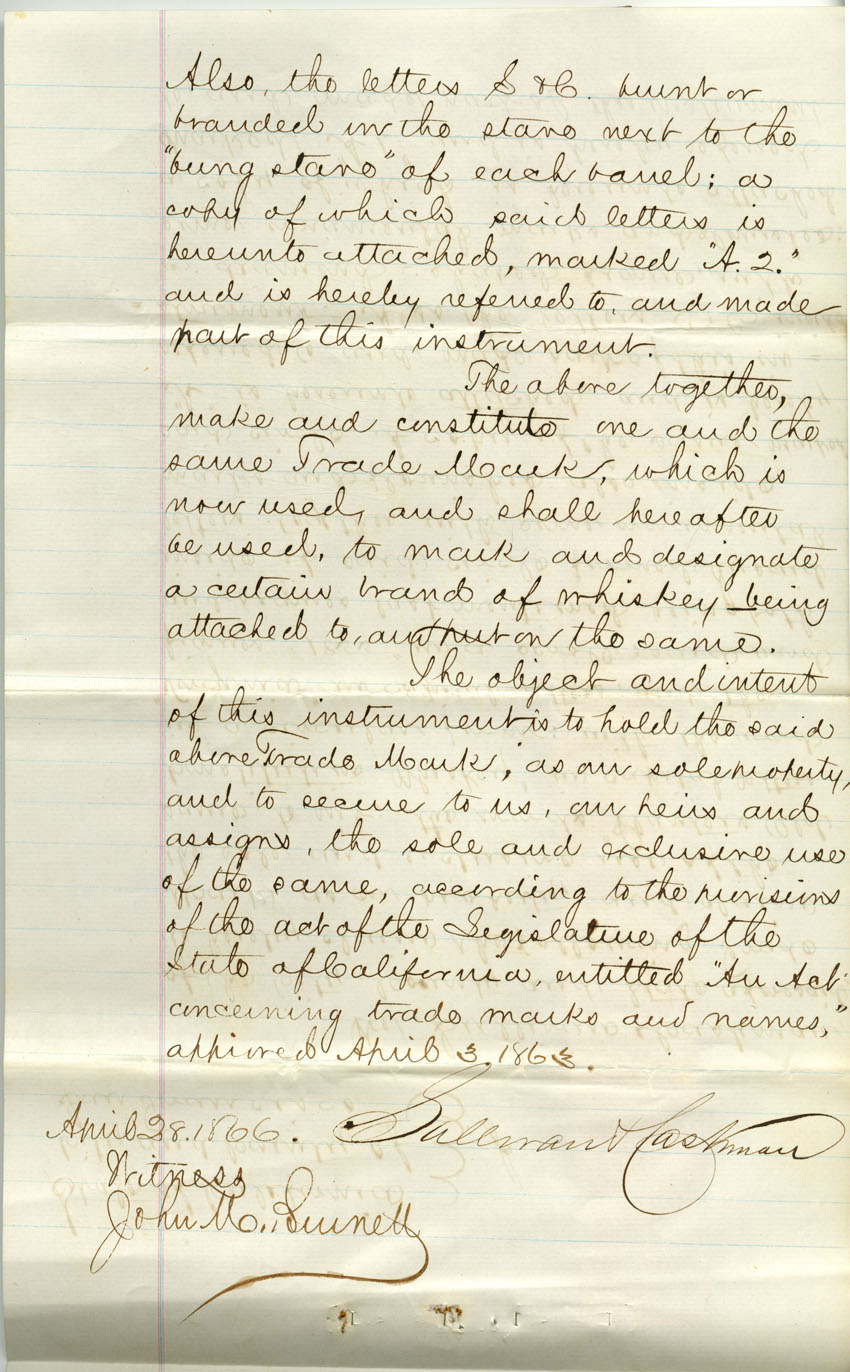 Also, the letters S & C. burnt or
branded in the stave next to the
"bung stave" of each barrel; a
copy of which said letters is
hereunto attached, marked "A. 2."
and is hereby referred to, and made
part of this instrument.
The above together,
make and constitute one and the
same Trade Mark, which is
now used, and shall hereafter
be used, to mark and designate
a certain brand of whiskey being
attached to, and put on the same.
The object and intent
of this instrument is to hold the said
above Trade Mark, as our sole property,
and to secure to us, our heirs and
assigns, the sole and exclusive use
of the same, according to the provisions
of the act of the Legislature of the
State of California, entitled "An Act
concerning trade marks and names,"
approved April 3. 1863.
April 28. 1866. & Cashman
Witness
John M. Burnett